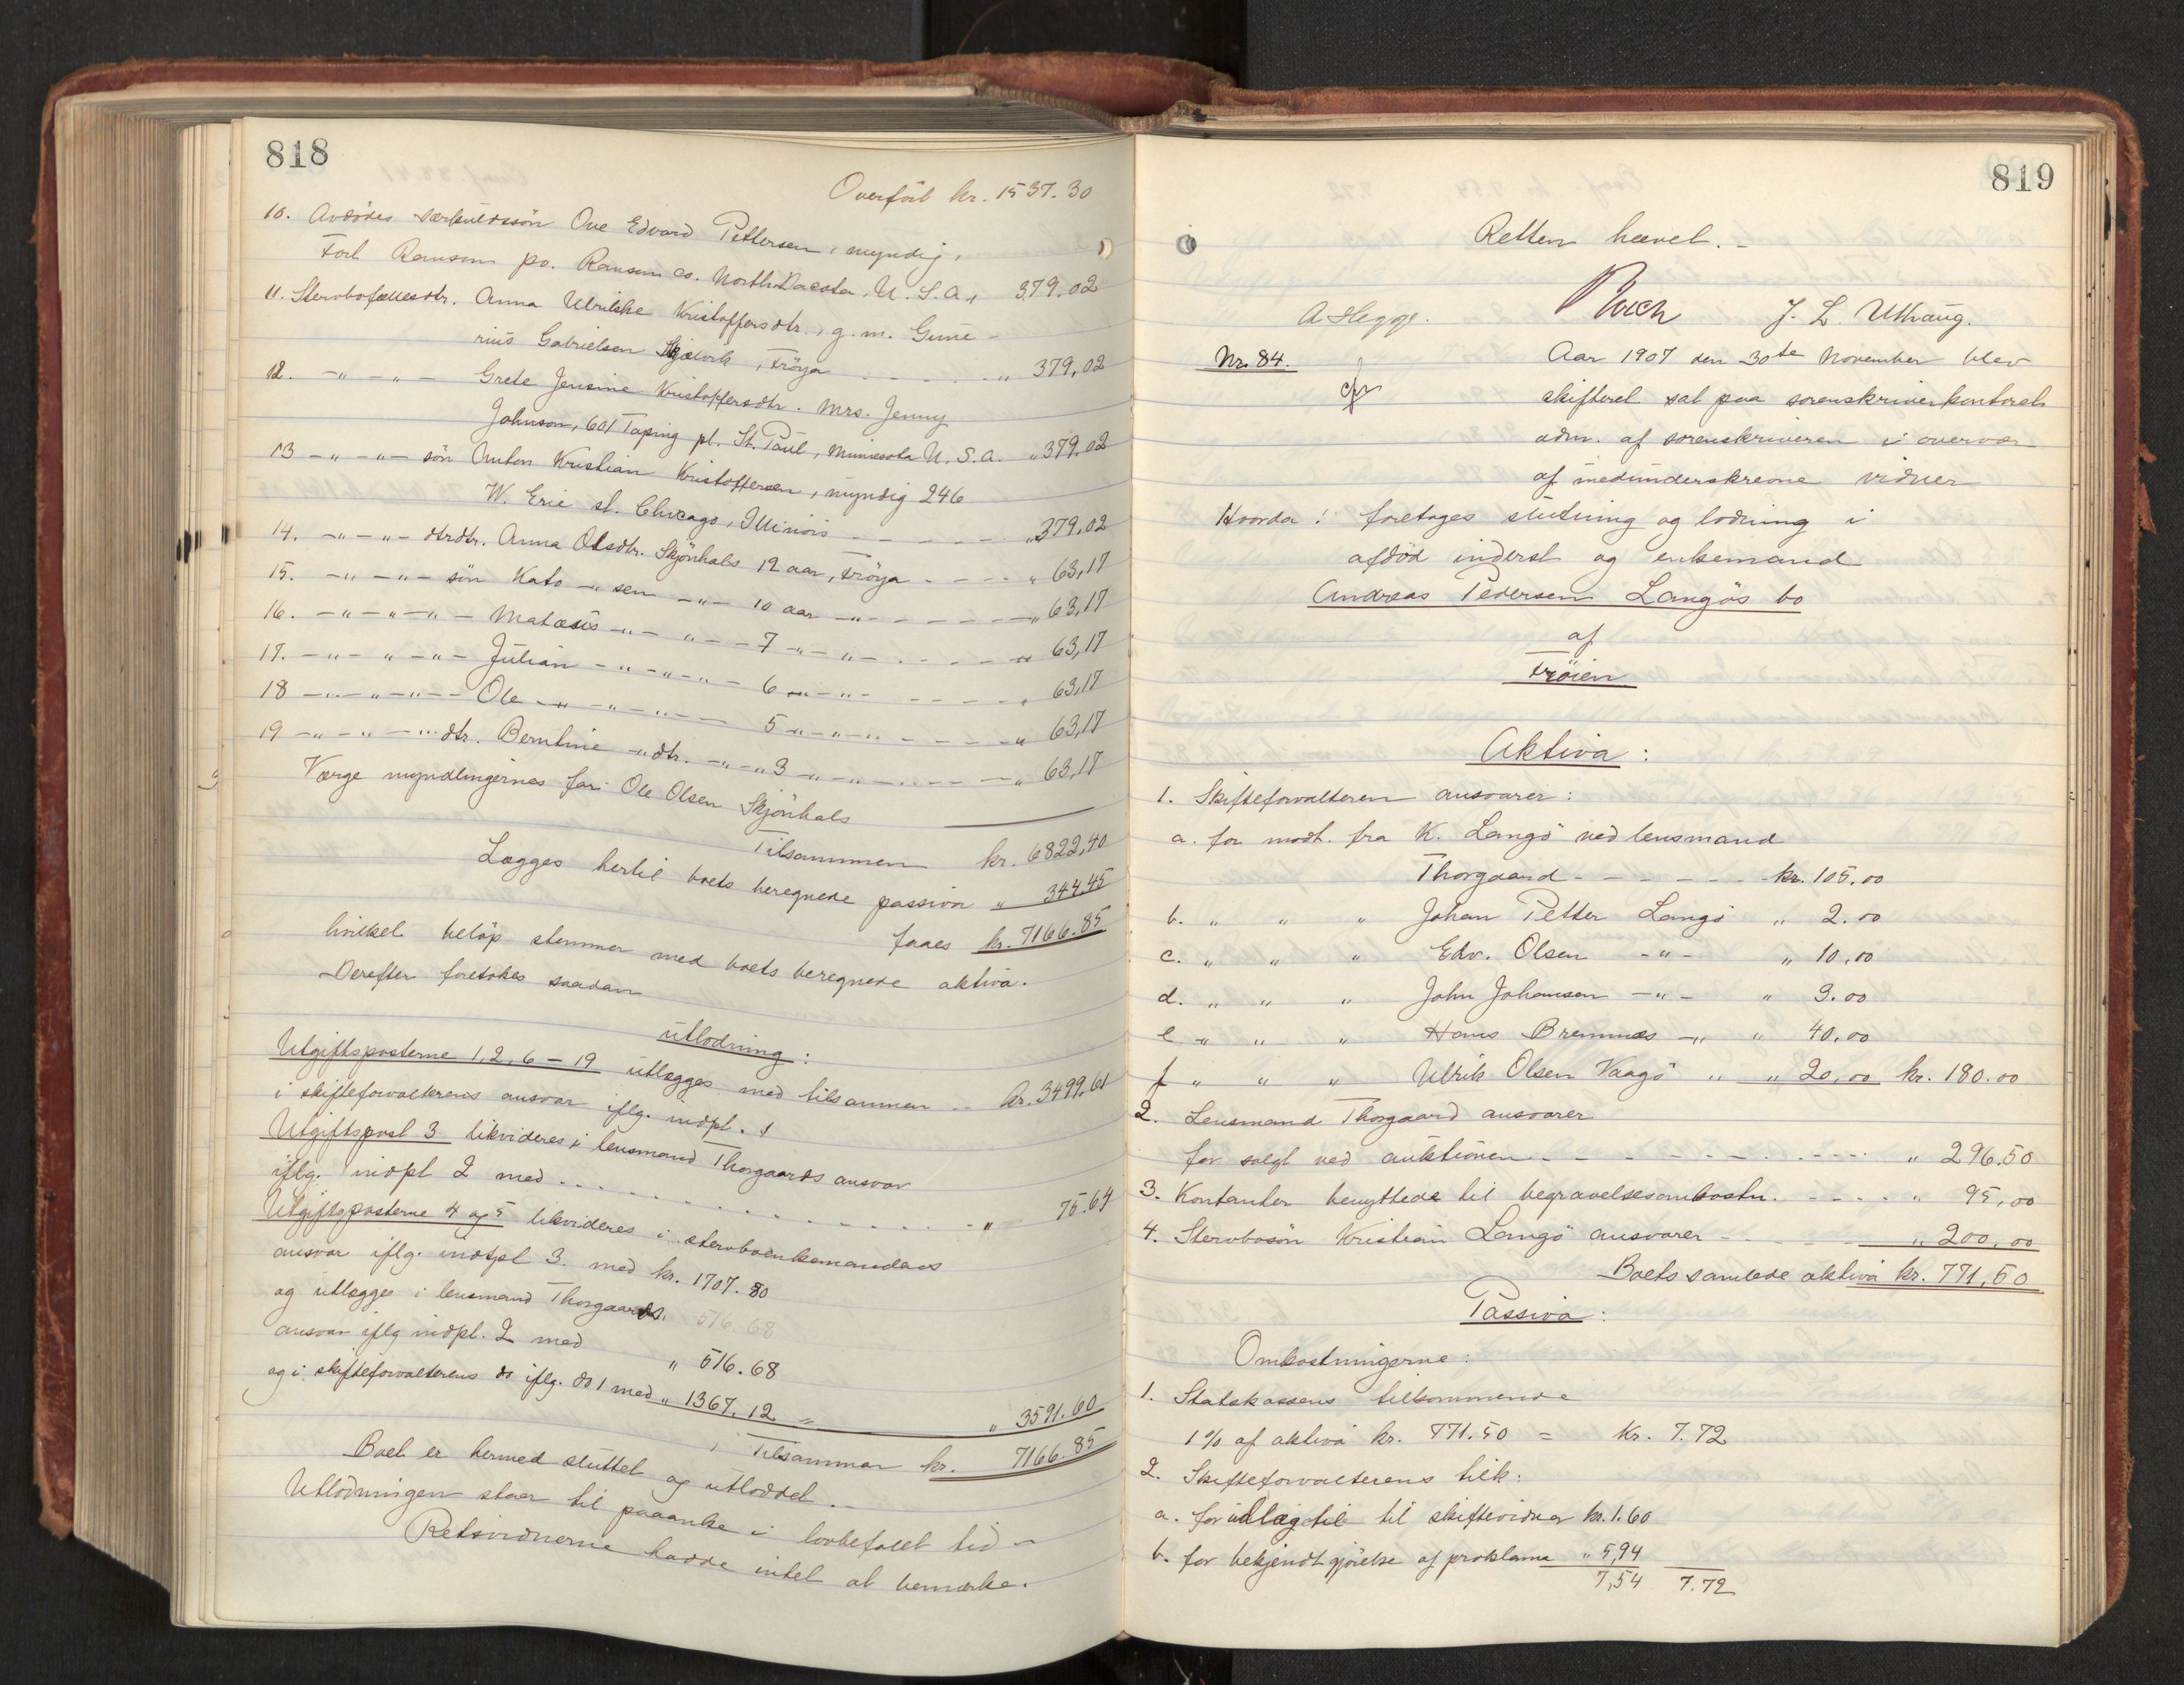 818
Overført kr. 1537.30
10. Avdödes særkuldssön Ove Edvard Pettersen, myndig,
Fort Ransom po. Ransom co. North Dacota, U.S.A., 379.02
11. Stervbofællesdtr. Anna Ulrikke Kristoffersdtr., g.m. Gune-
rius Gabrielsen, Fröya - - - - - „ 379,02
12. -„-„- Grete Jensine Kristoffersdtr. Mrs. Jenny
Johnson, 601 Taping pl. St. Paul, Minnesota U.S.A. „ 379.02
13 -„-„- sön Anton Kristian Kristoffersen, myndig 246
W. Erie st. Chicago, Illinois - - - - - „ 379,02
14. -„-„- dtrdtr. Anna Olsdtr. Skjönhals 12 aar, Fröya - - - „ 63,17
15. -„-„- sön Kato -„- sen -„- 10 aar -„- - - - - „ 63,17
16. -„-„-„- Matæus -„-„- 7 -„-„- - - - „ 63,17
17. -„-„-„- Julian -„-„-„- 6 -„-„- - - - „ 63,17
18 -„-„-„- Ole -„-„-„- 5 -„-„-„- - - - „ 63,17
19 -„-„-„- dtr. Berntine -„- dtr. -„-„ 3 -„-„- - - - „ 63,17
Værge myndlingernes far Ole Olsen Skjönhals
Tilsammen kr. 6822,40
Lægges hertil boets beregnede passiva „ 344.45
faaes kr. 7166.85
hvilket belöp stemmer med boets beregnede aktiva.
Derefter foretokes saadan
utlodning:
Utgiftsposterne 1, 2, 6 - 19 utlægges med tilsammen - - kr. 3499.61
i skifteforvalterens ansvar iflg. indpt. 1
Utgiftspost 3 likvideres i lensmand Thorgaards ansvar
iflg. indpt 2 med - - - - - - - - - „ 75.64
Utgiftsposterne 4 og 5 likvideres i stervboenkemandens
ansvar iflg. indpt 3. med kr. 1707.80
og utlægges i lensmand Thorgaards. 516.68
ansvar iflg indpt. 2 med „ 516.68
og i skifteforvalterens do iflg. do 1 med „ 1367.12 = „ 3591.60
Tilsammen kr. 7166.85
Boet er hermed sluttet og utloddet. -
Utlodningen staar til paaanke i lovbefalet tid -
Retsvidnerne hadde intet at bemærke.
819
Retten hævet. -
A Hegge. J. L. Uthaug.
Nr. 84. Aar 1907 den 30te November blev
skifteret sat paa sorenskriverkontoret
adm. af sorenskriveren i overvær
af medunderskrevne vidner
Hvorda! foretages slutning og lodning i
afdöd inderst og enkemand
Andreas Pedersen Langös bo
af
Fröien
Aktiva:
1. Skifteforvalteren ansvarer:
a. for modt. fra K. Langö ved lensmand
Thorgaard - - - - - - kr. 105.00
b. „ „ „ Johan Petter Langö „ 2.00
c. „ „ „ Edv. Olsen -„- „ 10,00
d. „ „ „ John Johansen -„- „ 3.00
e „ „ „ Hans Bremnes -„ „ 40,00
f „ „ „ Ulrik Olsen Vaagö „ „ 20,00 kr. 180.00
2. Lensmand Thorgaard ansvarer
for solgt ved auktionen - - - - - - - „ 296.50
3. Kontanter benyttede til begravelsesomkostn. - - - - „ 95,00
4. Stervbosön Kristian Langö ansvarer - - - - „ 200,00
Boets samlede aktiva kr. 771,50
Passiva:
Omkostningerne:
1. Statskassens tilkommende
1% af aktiva kr. 771.50 = Kr. 7.72
2. Skifteforvalterens tilk:
a. for utlæg til til skiftevidner kr. 1.60
b. for bekjendtgjörelse af proklama „ 5,94
7,54 7.72